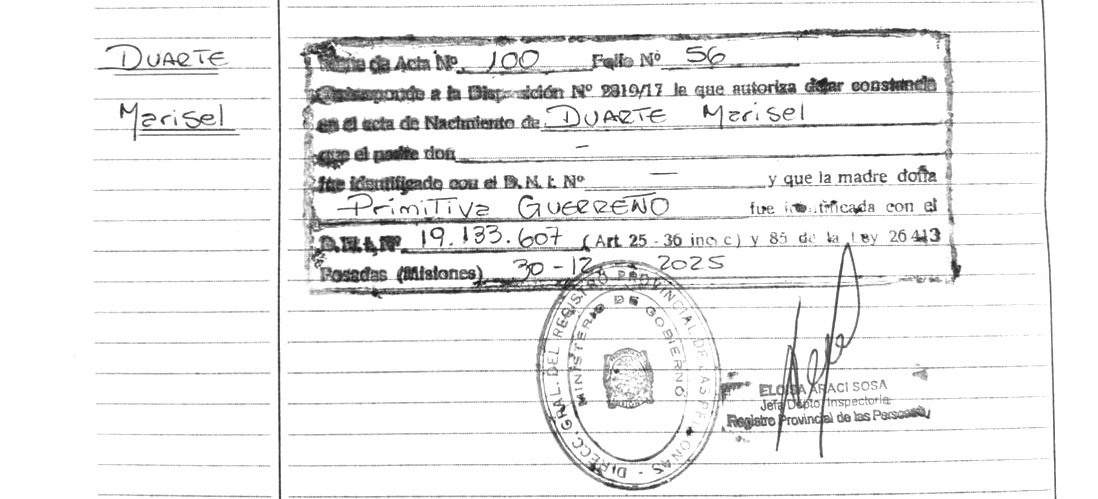 DUARTE
Marisel
de Acta Nº 100 Folio Nº 56
Corresponde a la Disposición Nº 2819/17 la que autoriza dejar constancia
en el acta de Nachmiento de DUARTE Marisel
que el padre don –
fue identificado con el D. N. I. Nº – y que la madre doña
Primitiva GUERREÑO fue identificada con el
D.N.I. Nº 19.133.607 (Art 25 - 36 inc c) y 85 de la Ley 26413
Posadas (Misiones) 30-12-2025
DIRECC. GRAL. DEL REGISTRO PROVINCIAL DE LAS PERSONAS
MINISTERIO DE GOBIERNO
ELOISA ARACI SOSA
Jefa Depto Inspectoria
Registro Provincial de las Personas